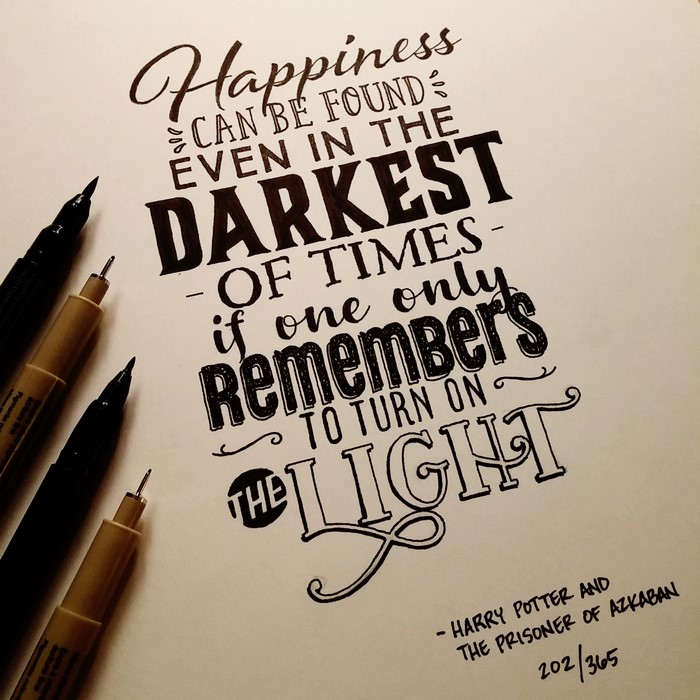 Happiness
CAN BE FOUND
EVEN IN THE
DARKEST
- OF TIMES -
if one only
Remembers
TO TURN ON
THE LIGHT
- HARRY POTTER AND
THE PRISONER OF AZKABAN
202/365